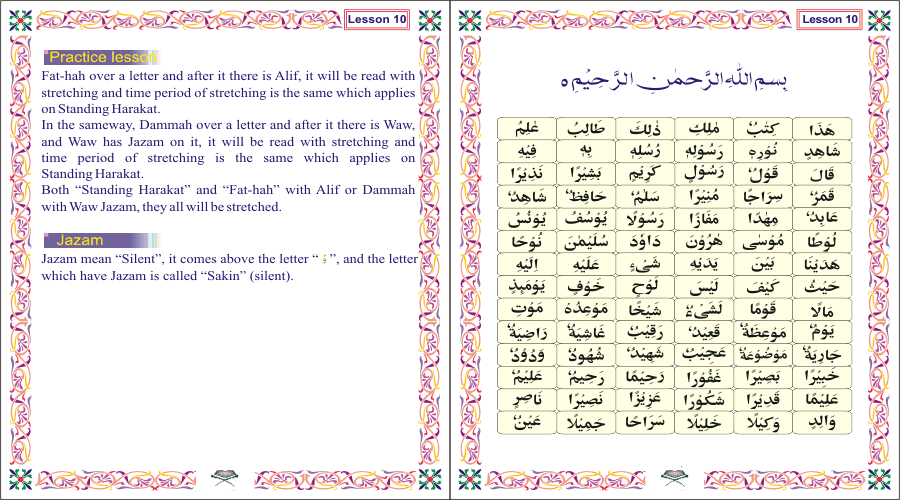 Lesson 10
Practice lesson
Fat-hah over a letter and after it there is Alif, it will be read with
stretching and time period of stretching is the same which applies
on Standing Harakat.
In the sameway, Dammah over a letter and after it there is Waw,
and Waw has Jazam on it, it will be read with stretching and
time period of stretching is the same which applies on
Standing Harakat.
Both “Standing Harakat” and “Fat-hah” with Alif or Dammah
with Waw Jazam, they all will be stretched.
Jazam
Jazam mean “Silent”, it comes above the letter “ وْ ”, and the letter
which have Jazam is called “Sakin” (silent).
Lesson 10
بِسْمِ اللّٰهِ الرَّحْمٰنِ الرَّحِيْمِ ە
هٰذَا كِتٰبٌ مٰلِكِ ذٰلِكَ طَالِبٌ عٰلِمُ
شَاهِدٍ نُوْرِهٖ رَسُوْلِهٖ رُسُلِهٖ بِهٖ فِيْهِ
قَالَ قَوْلٌ رَسُوْلٍ كَرِيْمٍ بَشِيْرًا نَذِيْرًا
قَمَرٌ سِرَاجًا مُنِيْرًا سَلٰمٌ حَافِظٌ شَاهِدٌ
عَابِدٌ مِهٰدًا مَفَازًا رَسُوْلًا يُوْسُفُ يُوْنُسُ
لُوْطًا مُوْسٰى هٰرُوْنَ دَاوٗدَ سُلَيْمٰنَ نُوْحًا
هَدَيْنَا بَيْنَ يَدَيْهِ شَيْءٍ عَلَيْهِ اِلَيْهِ
حَيْثُ كَيْفَ لَيْسَ لَوْحٍ خَوْفٍ يَوْمَئِذٍ
مَالًا قَوْمًا لَشَيْءٌ شَيْخًا مَوْعِدُهٗ مَوْتِ
يَوْمٌ مَوْعِظَةٌ قَعِيْدٌ رَقِيْبٌ غَاشِيَةٌ رَاضِيَةٌ
جَارِيَةٌ مَوْضُوْعَةٌ عَجِيْبٌ شَهِيْدٌ شُهُوْدٌ وَدُوْدٌ
خَبِيْرًا بَصِيْرًا غَفُوْرًا رَحِيْمًا رَحِيْمٌ عَلِيْمٌ
عَلِيْمًا قَدِيْرًا شَكُوْرًا عَزِيْزًا نَصِيْرًا نَاصِرٍ
وَالِدٍ وَكِيْلًا خَلِيْلًا سَرَاحًا جَمِيْلًا عَيْنٌ